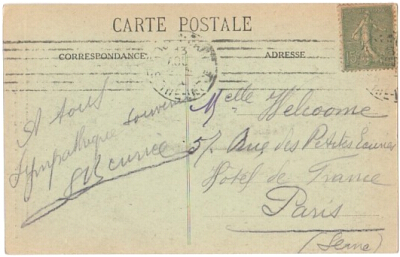 CARTE POSTALE
CORRESPONDANCE
ADRESSE
A tous
Sympathique souvenir
Melle Welcome
51 Rue des Petites Ecuries
Hôtel de France
Paris
(Seine)